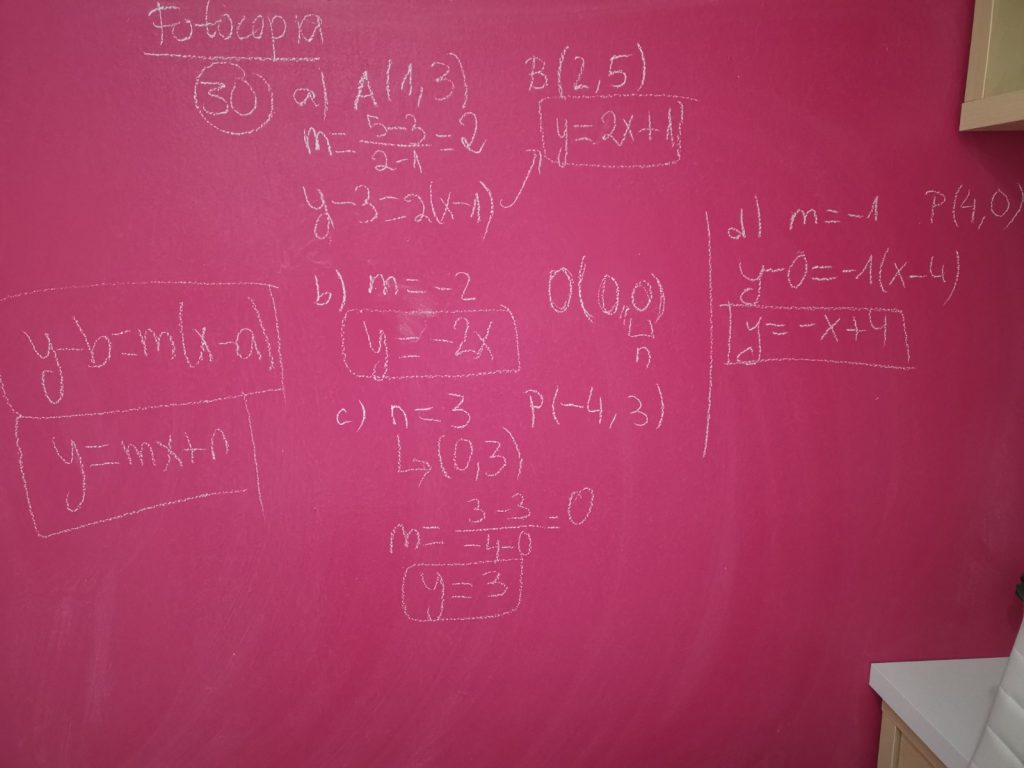 Fotocopia
30 a) A(1,3) B(2,5)
m = 5-3/2-1 = 2 y=2x+1
y-3=2(x-1)
b) m=-2 O(0,0)
n
y=-2x
c) n=3 P(-4,3)
↳(0,3)
m = 3-3/-4-0 = 0
y=3
d) m=-1 P(4,0)
y-0=-1(x-4)
y=-x+4
y-b=m(x-a)
y=mx+n